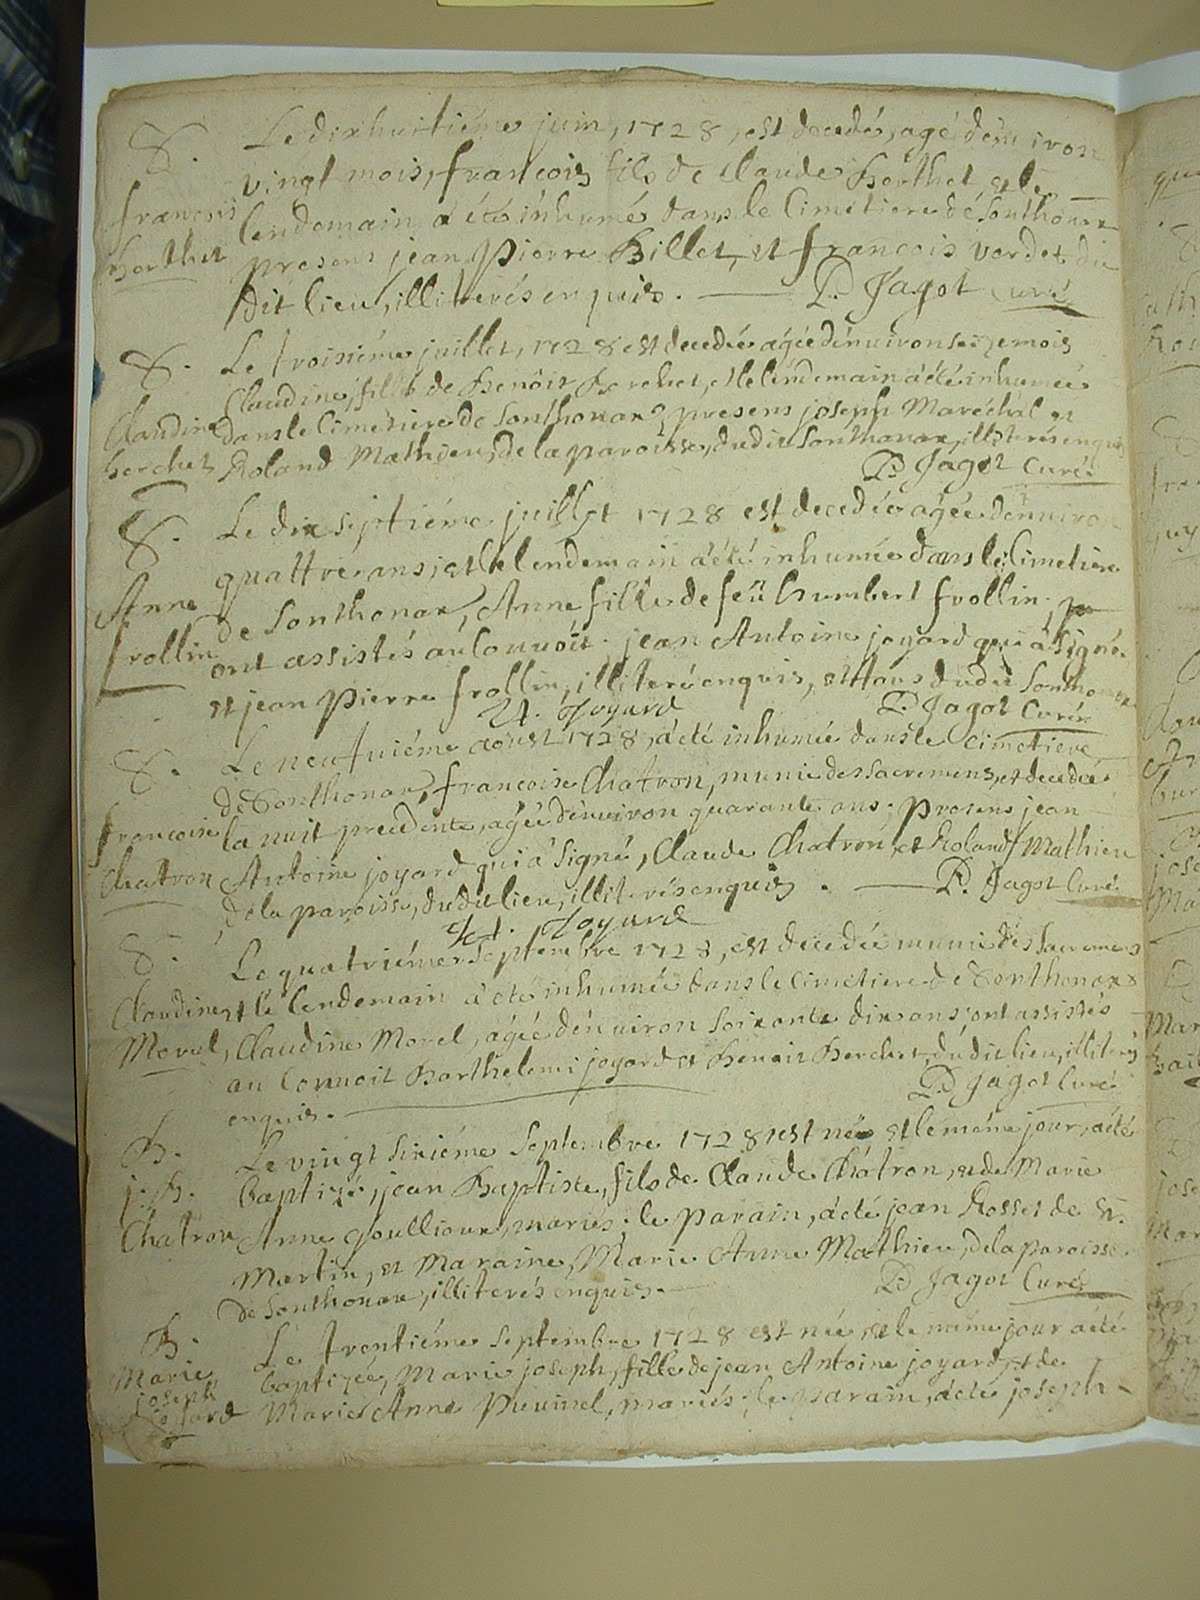 S. Le dixhuitiéme juin, 1728, est decedé, agé d'environ
vingt mois, françois fils de Claude Berthet, et le
françois lendemain a été inhumé dans le Cimetiere de Sonthonax
Berthet presens jean Pierre Billet, et françois verdet du
dit lieu, illiterés enquis. P. Jagot Curé
S. Le troisiéme juillet, 1728 est decedée agée d'environ seize mois
Claudine, fille de Benoit Berchet, et le lendemain a été inhumée
Claudine dans le Cimetiere de Sonthonax, presens joseph Maréchal et
berchet Roland Mathieu, de la paroisse, dudit Sonthonax, illiterés enquis
P. Jagot Curé
S. Le dix septiéme juillet 1728 est decedée agée d'environ
quattre ans, et le lendemain a été inhumée dans le Cimetiere
Anne de Sonthonax, Anne fille de feü humbert frollin,
frollin ont assistés au Convoit jean Antoine joyard qui a signé
et jean Pierre frollin, illiteré enquis, et tous dudit Sonthonax
A. Joyard P. Jagot Curé
S. Le neufviéme aoust 1728, a été inhumée dans le cimetiere
de Sonthonax, francoise Chatron, munie des sacremens, et decedée
francoise la nuit precedente, agée d'environ quarante ans; Presens jean
Chatron Antoine joyard qui a signé, Claude Chatron, et Roland Mathieu
de la paroisse, dudit lieu, illiterés enquis. P. Jagot Curé
A. Joyard
S. Le quatriéme Septembre 1728, est decedée munie des sacremens
Claudine et le lendemain a été inhumée dans le cimetiere de Sonthonax
Morel, Claudine Morel, agée d'environ soixante dix ans, ont assistés
au Convoit Barthelemi joyard et Benoit Berchet, dudit lieu, illiterés
enquis. P. Jagot Curé
B. Le vingt sixiéme Septembre 1728 est né et le méme jour, a été
j. B. baptizé, jean Baptiste, fils de Claude Chatron, et de Marie
Chatron Anne Goullioux, mariés; le parain, a été jean Rosset de St.
Martin, et Maraine, Marie Anne Mathieu, de la paroisse
de Sonthonax, illiterés enquis. P. Jagot Curé
B. Le trentiéme Septembre 1728 est née et le méme jour a été
Marie baptizée, Marie joseph, fille de jean Antoine joyard, et de
joseph
joyard Marie Anne, mariés; le parain, a été joseph